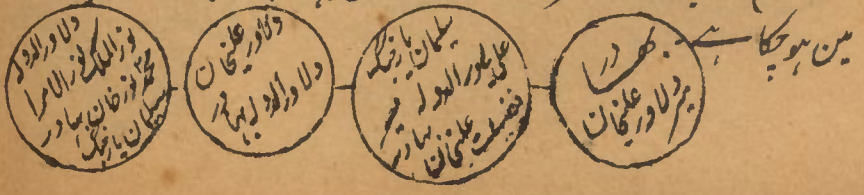 مین ہوچکا ہے
میر دلاور علیخان بہادر
سلیمان یار جنگ
علی یاور الدولہ
میر فضیلت علیخان بہادر
دلاور علیخان
دلاور الدولہ بہادر
دلاور الدولہ
نور الملک نور الامرا
محمد نور خان بہادر
سلیمان یار جنگ